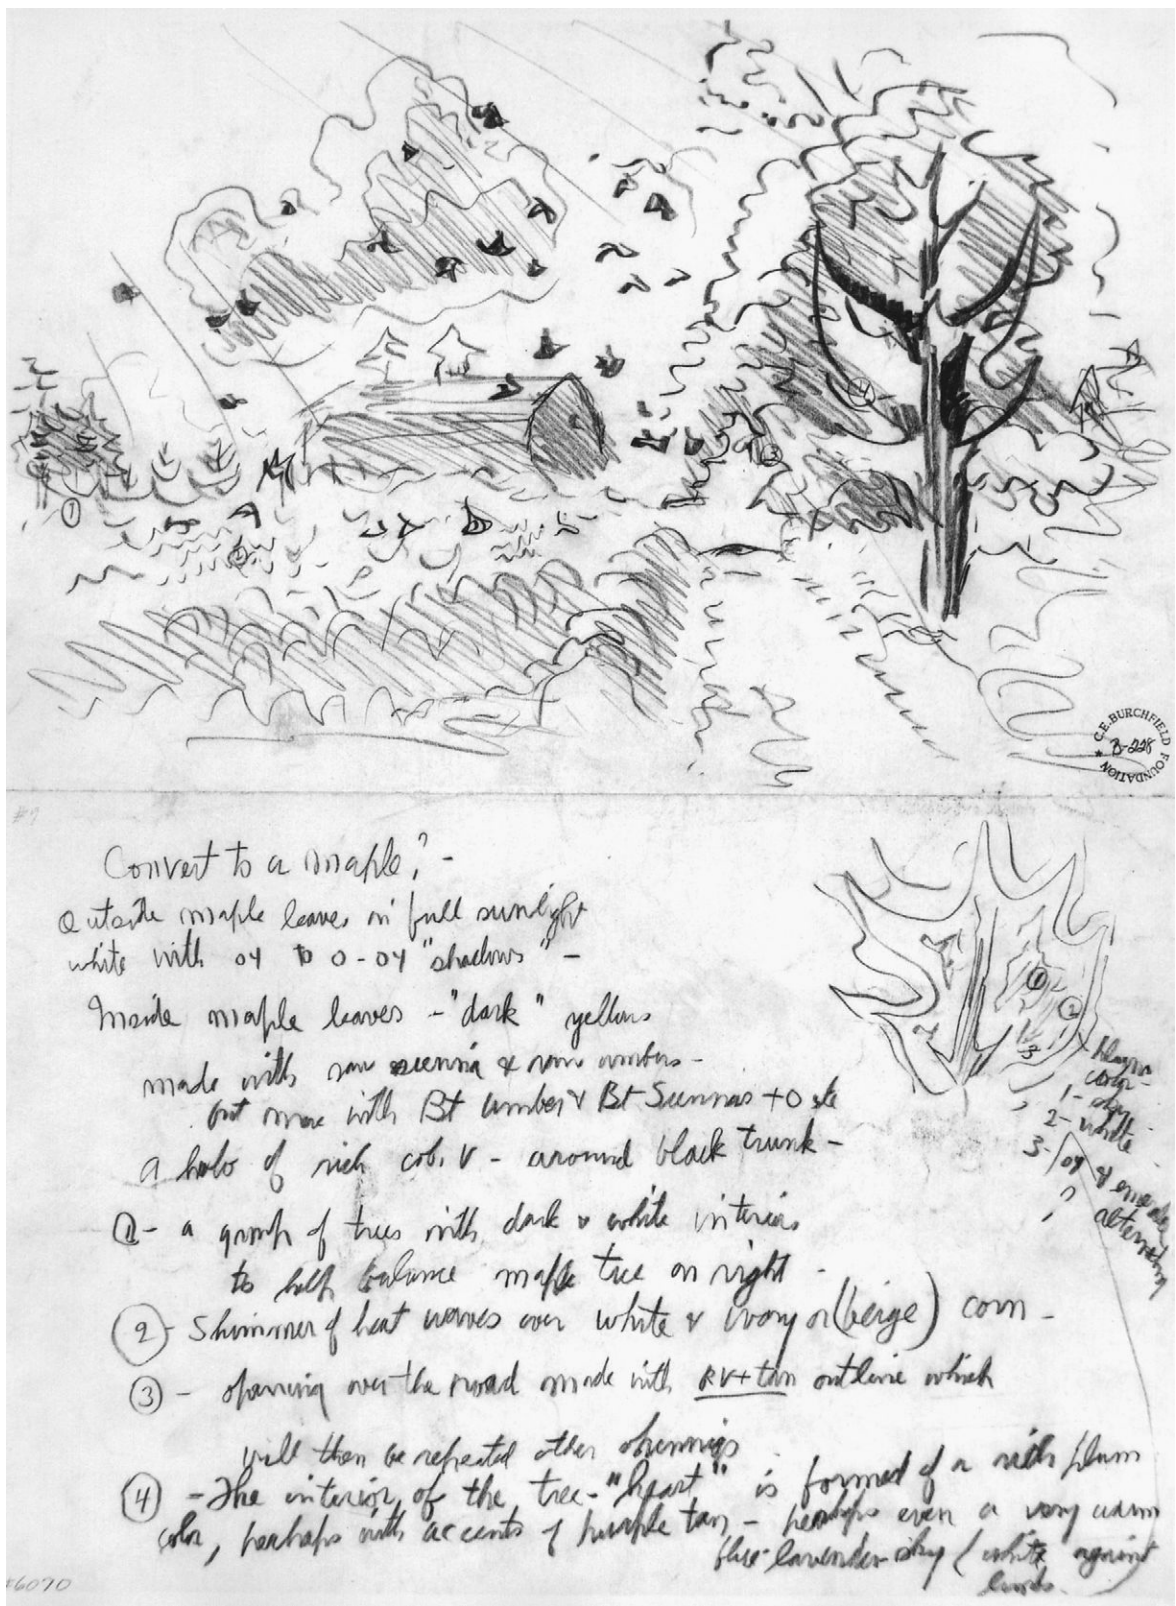 ①
②
③
④
C.E. BURCHFIELD FOUNDATION
B-228
#7
Convert to a maple? -
Outside maple leaves in full sunlight
white with OY to O-OY "shadows" -
Inside maple leaves - "dark" yellows
made with raw sienna & raw umbers -
but more with Bt umber & Bt Siennas + O
a halo of rich cob. V - around black trunk -
① - a group of trees with dark & white interiors
to help balance maple tree on right -
② - Shimmer of heat waves over white & ivory or (beige) corn -
③ - opening over the road made with RV + tan outline which
will then be repeated other openings
④ - The interior of the tree - "heart" is formed of a rich plum
color, perhaps with accents of purple tan - perhaps even a very warm
blue-lavender sky (white against
①
②
3
color -
1 - sky
2 - white
3 - OY &
?
#6070